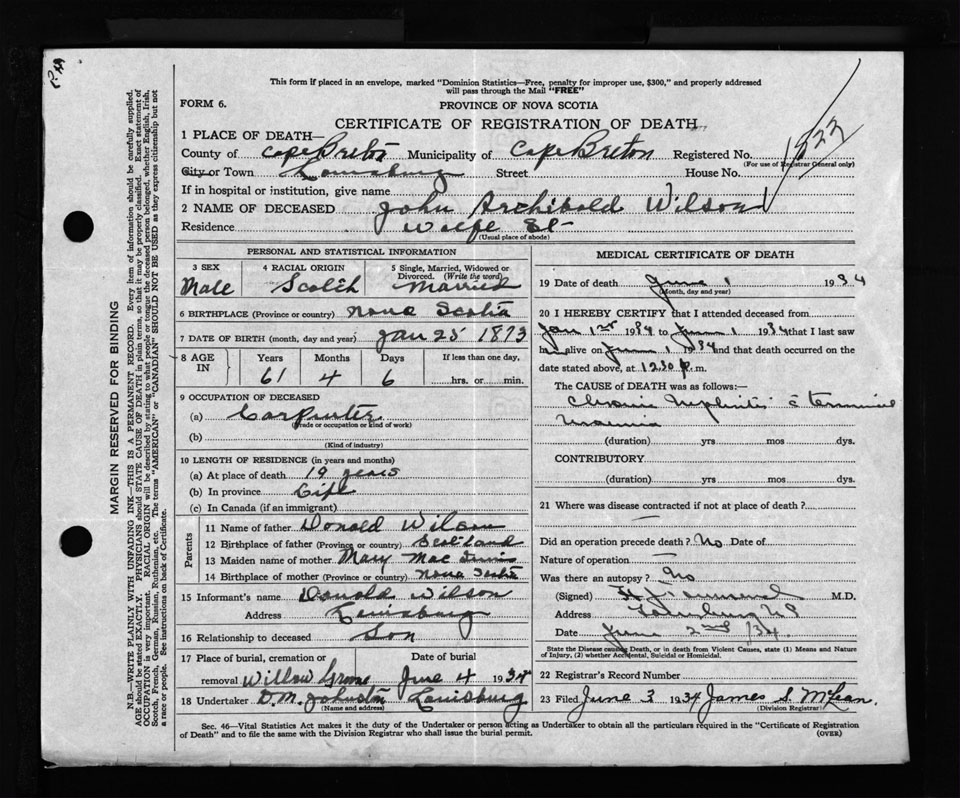 This form if placed in an envelope, marked "Dominion Statistics—Free, penalty for improper use, $300," and properly addressed
will pass through the Mail "FREE"
FORM 6.
PROVINCE OF NOVA SCOTIA
CERTIFICATE OF REGISTRATION OF DEATH
1 PLACE OF DEATH—
County of Cape Breton Municipality of Cape Breton Registered No.
(For use of Registrar General only)
City or Town Louisburg Street House No.
If in hospital or institution, give name
2 NAME OF DECEASED John Archibald Wilson
Residence Wolfe St
(Usual place of abode)
PERSONAL AND STATISTICAL INFORMATION
3 SEX 4 RACIAL ORIGIN 5 Single, Married, Widowed or Divorced. (Write the word)
Male Scotch Married
6 BIRTHPLACE (Province or country) Nova Scotia
7 DATE OF BIRTH (month, day and year) Jan 25 1873
8 AGE IN Years Months Days If less than one day,
61 4 6 hrs. or min.
9 OCCUPATION OF DECEASED
(a) Carpenter
(Trade or occupation or kind of work)
(b)
(Kind of industry)
10 LENGTH OF RESIDENCE (in years and months)
(a) At place of death 19 years
(b) In province Life
(c) In Canada (if an immigrant)
Parents
11 Name of father Donald Wilson
12 Birthplace of father (Province or country) Scotland
13 Maiden name of mother Mary Mac
14 Birthplace of mother (Province or country) Nova Scotia
15 Informant's name Donald Wilson
Address Louisburg
16 Relationship to deceased Son
17 Place of burial, cremation or Date of burial
removal Willow Grove June 4 1934
18 Undertaker D. M. Johnston Louisburg
(Name and address)
MEDICAL CERTIFICATE OF DEATH
19 Date of death June 1 1934
(Month, day and year)
20 I HEREBY CERTIFY that I attended deceased from
Jan 1st 1934 to June 1 1934 that I last saw
h alive on June 1 1934 and that death occurred on the
date stated above, at 12.30 p.m.
The CAUSE OF DEATH was as follows:—
Chronic Nephritis c terminal
Uraemia
(duration) yrs mos dys.
CONTRIBUTORY
(duration) yrs mos dys.
21 Where was disease contracted if not at place of death?
Did an operation precede death? No Date of
Nature of operation —
Was there an autopsy? No
(Signed) M.D.
Address Louisburg NS
Date June 2nd /34.
State the Disease causing Death, or in death from Violent Causes, state (1) Means and
Nature of Injury, (2) whether Accidental, Suicidal or Homicidal.
22 Registrar's Record Number
23 Filed June 3 1934 James S. McLean.
(Division Registrar)
Sec. 46—Vital Statistics Act makes it the duty of the Undertaker or person acting as Undertaker to obtain all the particulars required in the "Certificate of Registration
of Death" and to file the same with the Division Registrar who shall issue the burial permit. (OVER)
MARGIN RESERVED FOR BINDING
N.B.—WRITE PLAINLY WITH UNFADING INK—THIS IS A PERMANENT RECORD. Every item of information should be carefully supplied.
AGE should be stated EXACTLY. PHYSICIANS should STATE CAUSE OF DEATH in plain terms, so that it may be properly classified. Exact statement of
OCCUPATION is very important. RACIAL ORIGIN will be described by stating to what people or tongue the deceased person belonged, whether English, Irish,
Scotch, French, German, Russian, Ruthenian, etc. The terms "AMERICAN" or "CANADIAN" SHOULD NOT BE USED as they express citizenship but not
a race or people. See instructions on back of Certificate.